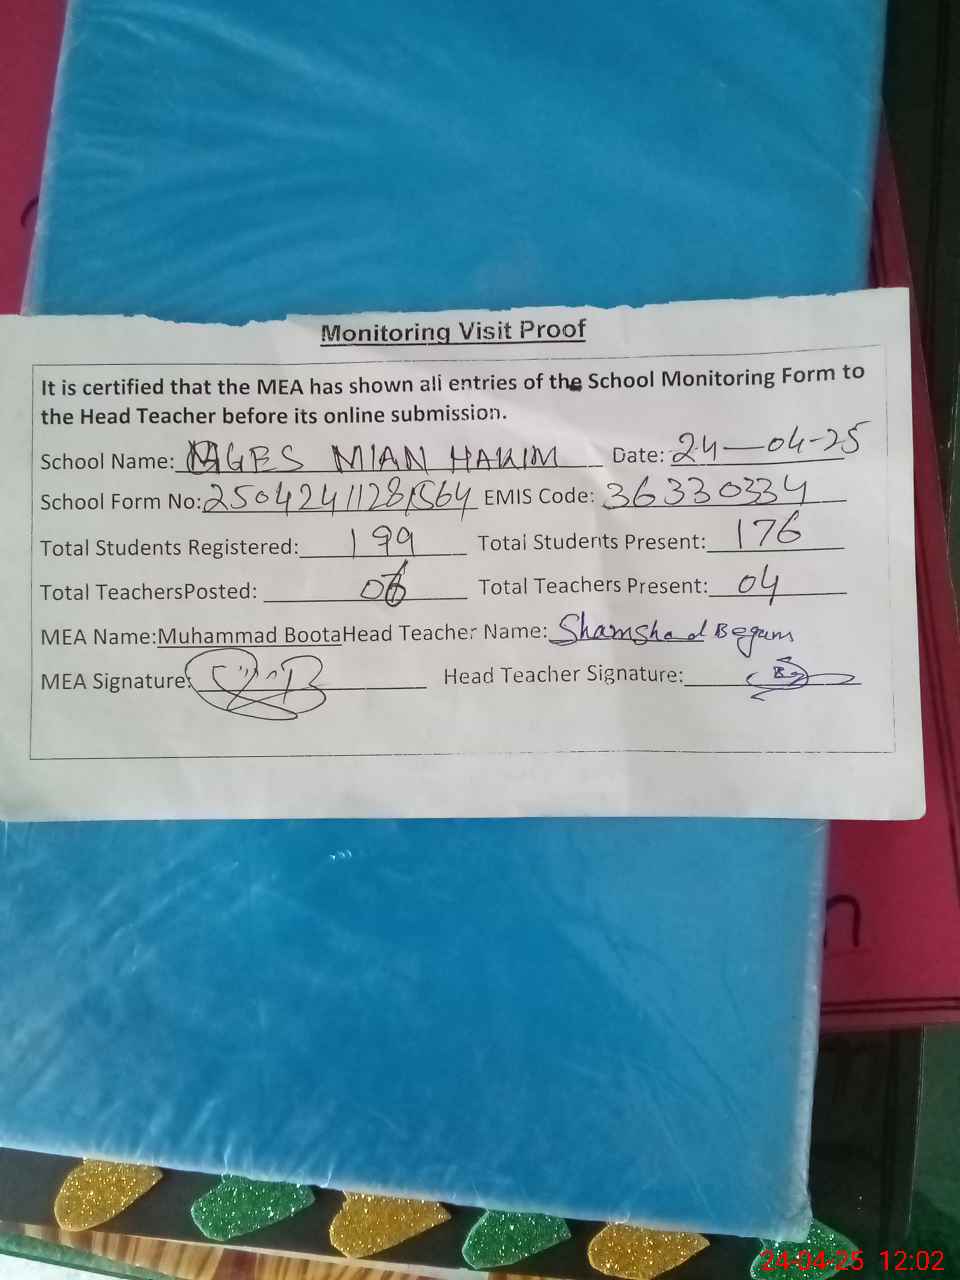 Monitoring Visit Proof
It is certified that the MEA has shown all entries of the School Monitoring Form to
the Head Teacher before its online submission.
School Name: MGES MIAN HAKIM Date: 24-04-25
School Form No: EMIS Code: 36330334
Total Students Registered: 199 Total Students Present: 176
Total TeachersPosted: Total Teachers Present: 04
MEA Name:Muhammad BootaHead Teacher Name: Shamshad Begum
MEA Signature: Head Teacher Signature:
n
24-04-25 12:02